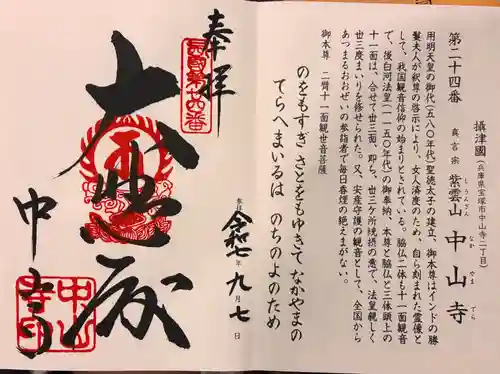 第二十四番
攝津國(兵庫県宝塚市中山寺二丁目)
真言宗 紫雲山 中山寺
しうんざん なか やま でら
用明天皇の御代(五八〇年代)聖徳太子の建立、御本尊はインドの勝
鬘夫人が釈尊の啓示により、女人済度のため、自ら刻まれた霊像と
して、我国観音信仰の始まりとされている。脇仏二体も十一面観音
で、後白河法皇(一一五〇年代)の御奉納、本尊と脇仏と三体頭上の
十一面は、合せて丗三面、即ち、丗三ケ所統摂の意で、法皇親しく
丗三度まいりを修せられた。又、安産守護の観音として、全国から
あつまるおおぜいの参詣者で毎日香煙の絶えまがない。
御本尊 二臂十一面観世音菩薩
のをもすぎ さとをもゆきて なかやまの
てらへまいるは のちのよのため
奉拝
西國第廿四番
大悲殿
中山寺
中山寺印
参拝 令和七年九月七日